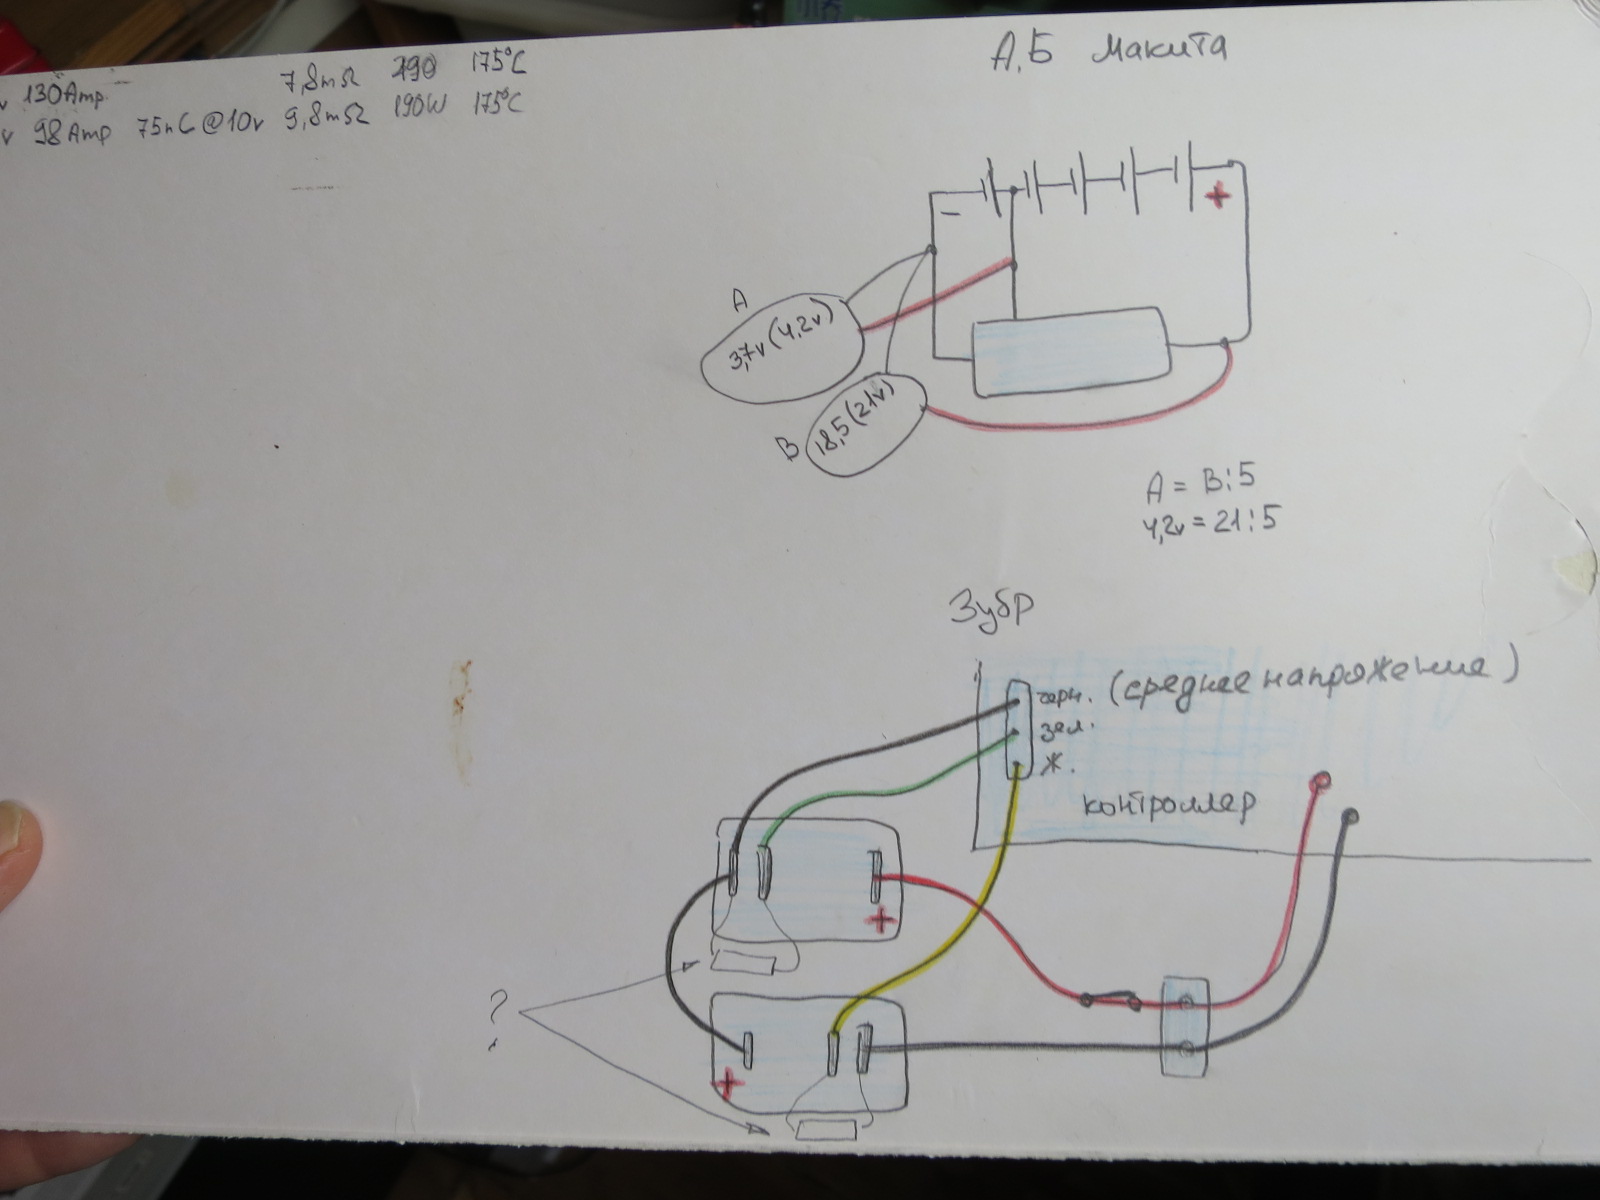 v 130Amp 7,8mΩ 190 175°C
v 98Amp 75nC@10v 9,8mΩ 190W 175°C
А,Б Макита
−
+
A
3,7v(4,2v)
B
18,5(21v)
A = B:5
4,2v = 21:5
Зубр
черн. (среднее напряжение)
зел.
ж.
контроллер
+
?
+